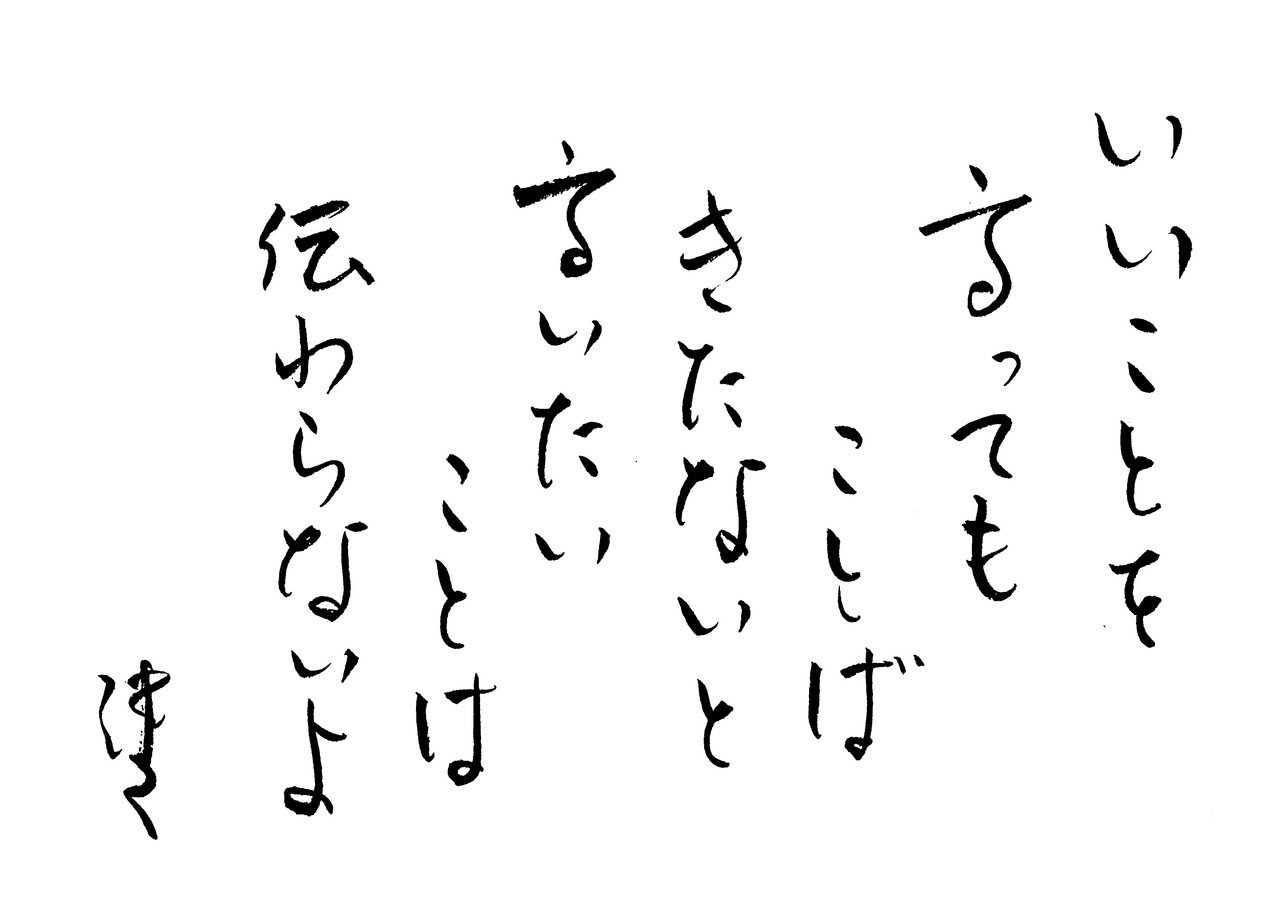 いいことを
言っても
ことば
きたないと
言いたい
ことは
伝わらないよ